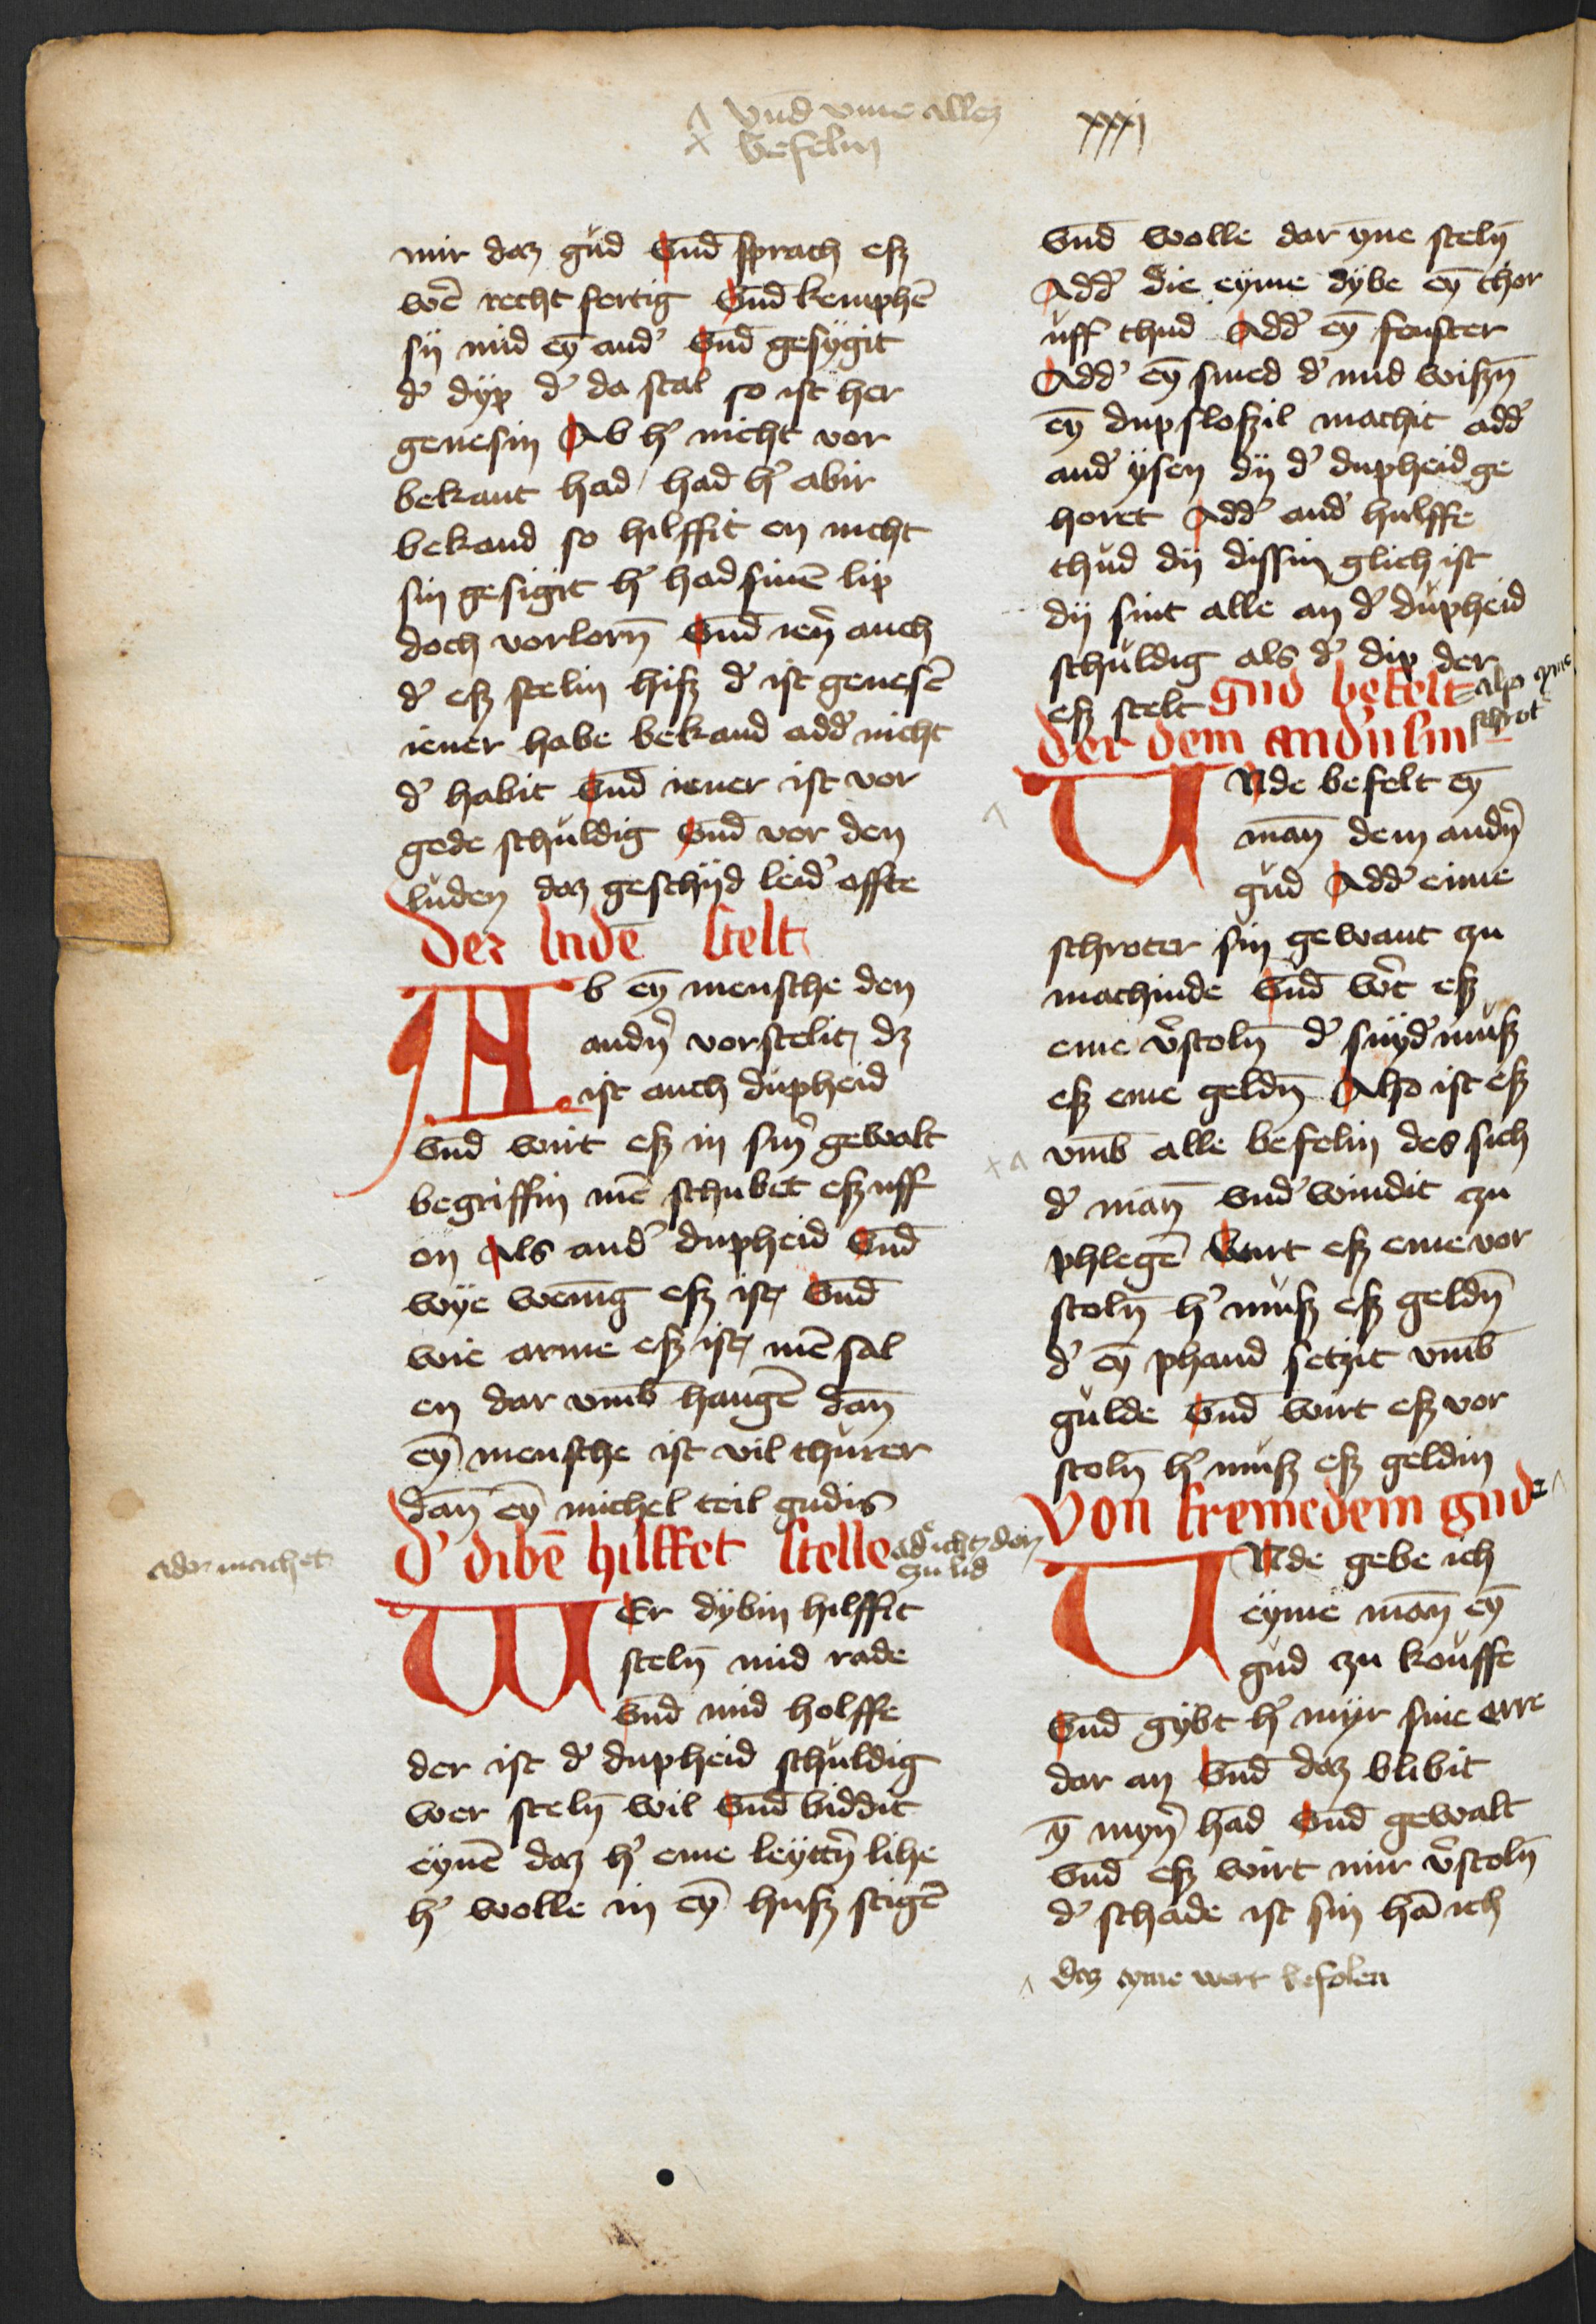 vnd vme allez
befelin
xxxj
mir daz gud vnd sprach esz
wē recht fertig vnd kemphē
sij mid eȳ and' vnd gesÿgit
d' dÿp d' da stal so ist her
genesin Ab h' nicht vor
bekant had / had h' abir
bekand so hilffit en nicht
sin gesigit h' had sinē lip
doch vorlorn̄ vnd ien̄ auch
d' esz stelin hisz d' ist genesē
iener habe bekand add' nicht
d' habit vnd iener ist vor
gode schuldig vnd vor den
luden daz geschijd leid' offte
der ludē stelt
Ab eȳ mensche den
andn̄ vorstelit dz
ist auch dupheid
vnd wirt esz in sin' gewalt
begriffin mē schubet esz uff
en Als and' dupheid vnd
wÿe wenig esz ist vnd
wie arme esz ist mē sal
en dar vmb hangē dan̄
eȳ mensche ist vil thurer
dan̄ eȳ michel teil gudis
d' dibē hilffet stelle
ad' ichtz den
zu lid
ader machet
WEr dÿbin hilffit
steln̄ mid rade
vnd mid holffe
der ist d' dupheid schuldig
wer steln̄ wil vnd biddit
eynē daz h' eme leÿttn̄ lihe
h' wolle in eȳ husz stigē
vnd wolle dar ȳne steln̄
Add' die eyme dÿbe eȳ thor
uff thud Add' eȳ fenster
Add' eȳ smed d' mid wiszn̄
eȳ dupsloszil machit add'
and' ÿsen dij d' dupheid ge
horet Add' and' hulffe
thud dij dissin glich ist
dij sint alle an d' dupheid
schuldig als d' dip der
esz stelt gud befelt
also eyme
schrot'
der dem and'n sin
UNde befelt eȳ
man̄ dem andn̄
gud Add' eime
schroter sin gewant zu
machinde vnd w't esz
eme v'stoln̄ d' snÿd' musz
esz eme geldn̄ Also ist esz
vmb alle befelin des sich
d' man̄ vnd' windit zu
phlegē wirt esz eme vor
stoln̄ h' musz esz geldn̄
d' eȳ phand setzit vmb
gulde vnd wirt esz vor
stoln̄ h' musz esz geldin
Von fremedem gude
UNde gebe ich
eyme man̄ eȳ
gud zu kouffe
vnd gÿbt h' mijr sine erre
dar an vnd daz blibit
ȳ myn' had vnd gewalt
vnd esz wirt mir v'stoln̄
d' schade ist sin hā ich
daz eyme wert befolen